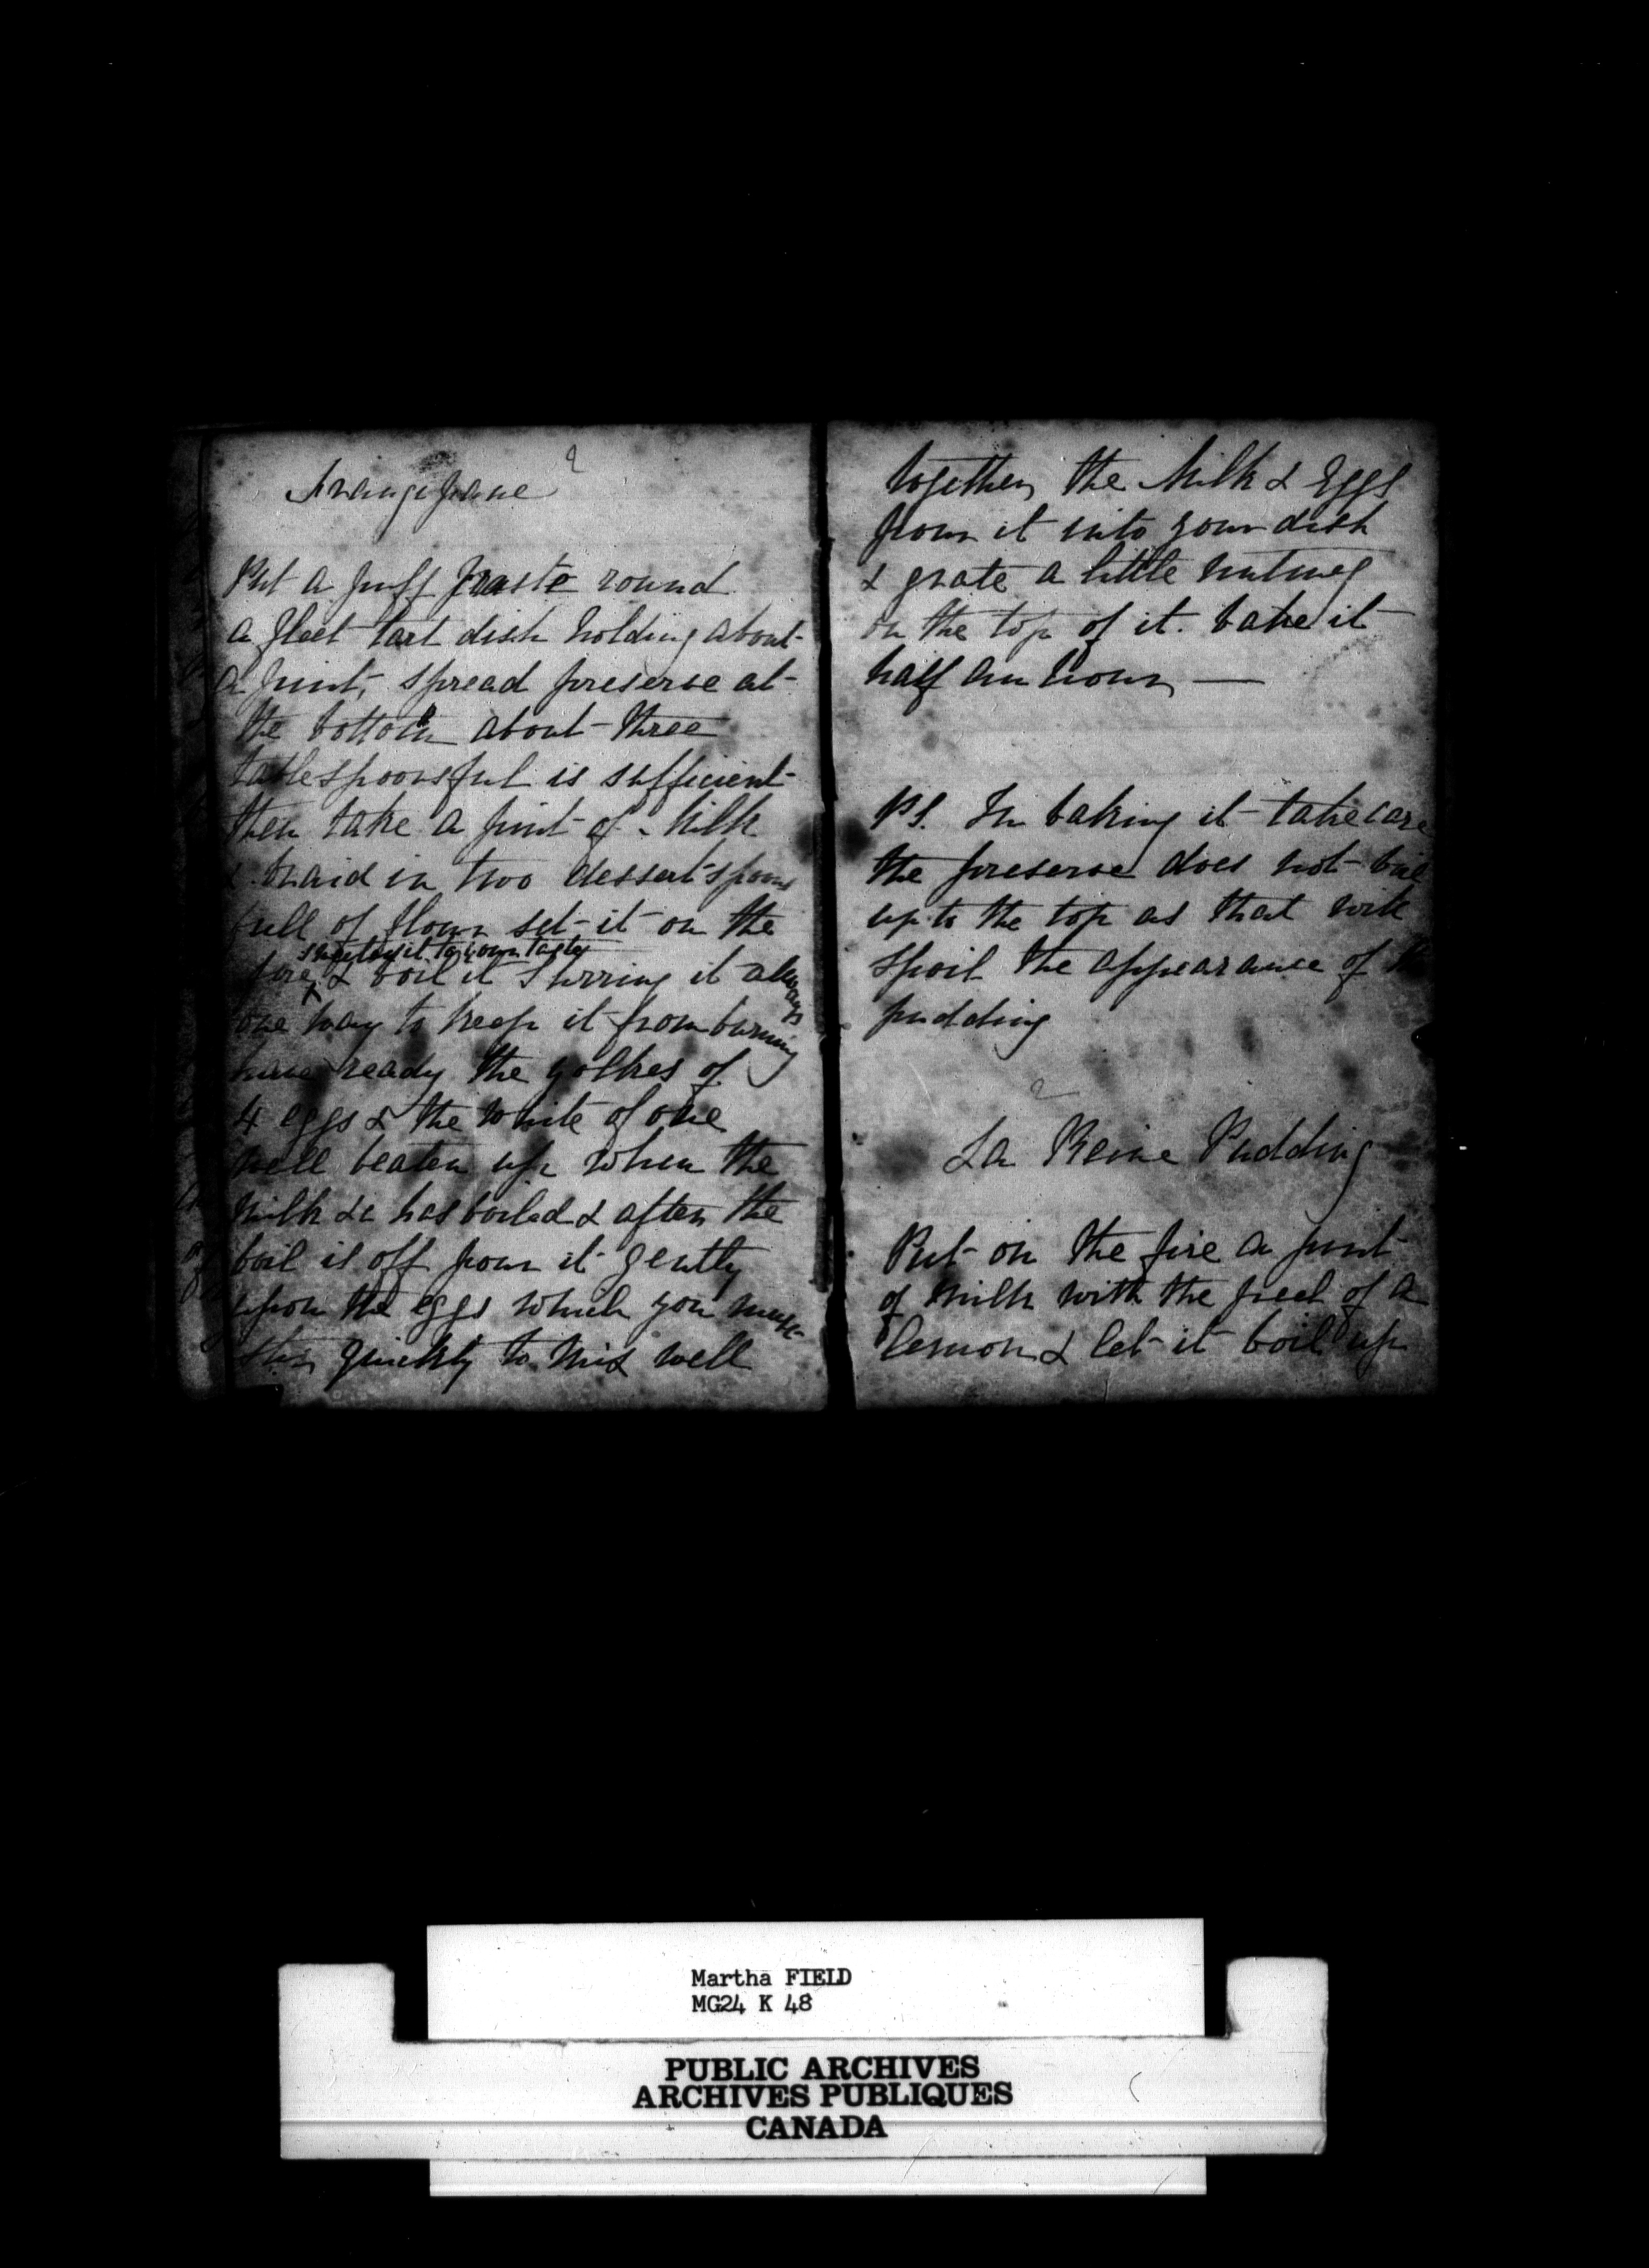 Frangipane
Put a puff paste round
a fleet tart dish holding about
a pint, spread preserve at
the bottom about three
tablespoonsful is sufficient
then take a pint of Milk
& braid in two dessert spoons
full of flour set it on the
sweeten it to your taste
fire & boil it stirring it always
one way to keep it from burning
have ready the yolkes of
4 eggs & the white of one
well beaten up when the
milk &c has boiled & after the
boil is off pour it gently
upon the eggs which you must
stir quickly to mix well
together the Milk & Eggs
pour it into your dish
& grate a little nutmeg
on the top of it. bake it
half an hour —
PS. In baking it take care
the preserve does not boil
up to the top as that will
spoil the appearance of the
pudding
La Reine Pudding
Put on the fire a pint
of milk with the peel of a
lemon & let it boil up
Martha FIELD
MG24 K 48
PUBLIC ARCHIVES
ARCHIVES PUBLIQUES
CANADA